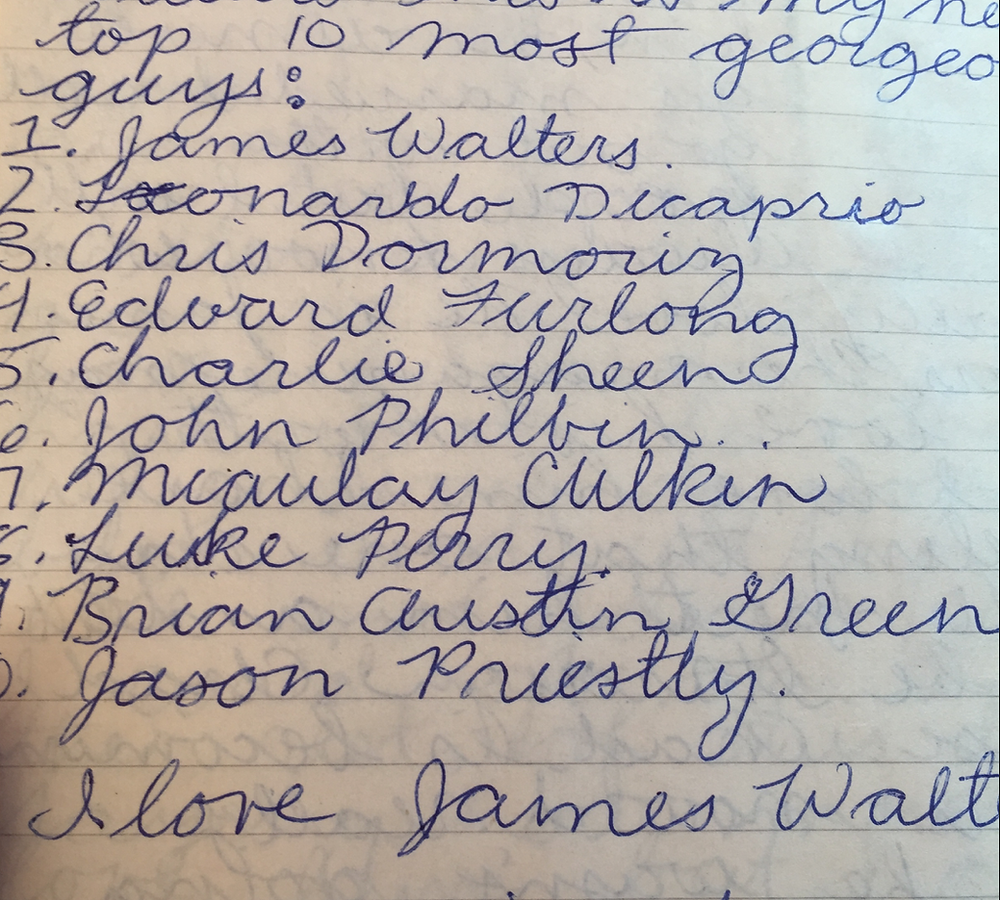 my ne
top 10 most georgeo
guys:
1. James Walters.
2. Leonardo Dicaprio
3. Chris Dormoriz
4. Edward Furlong
5. Charlie Sheen
6. John Philbin..
7. Micaulay Culkin
8. Luke Perry.
9. Brian Austin Green
0. Jason Priestly.
I love James Walt